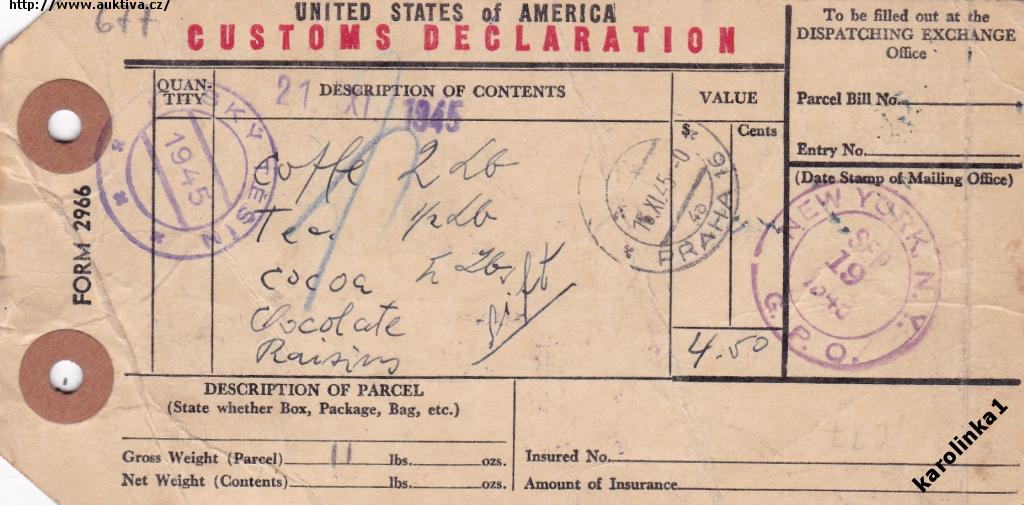 http://www.auktiva.cz/
677
UNITED STATES of AMERICA
CUSTOMS DECLARATION
To be filled out at the
DISPATCHING EXCHANGE
Office
Parcel Bill No.
Entry No.
(Date Stamp of Mailing Office)
NEW YORK, N.Y.
SEP
19
1945
G. P. O.
QUAN-
TITY
DESCRIPTION OF CONTENTS
VALUE
$
Cents
21 XI 1945
SKÝ TĚŠÍN
1945
16.XI.45
PRAHA 16
Coffe 2 Lb
Tea 1/2 Lb
Cocoa 5 Lbs
gift
Chocolate
Raisins
4.50
FORM 2966
DESCRIPTION OF PARCEL
(State whether Box, Package, Bag, etc.)
Gross Weight (Parcel) 11 lbs. ozs.
Net Weight (Contents) lbs. ozs.
Insured No.
Amount of Insurance
karolinka1